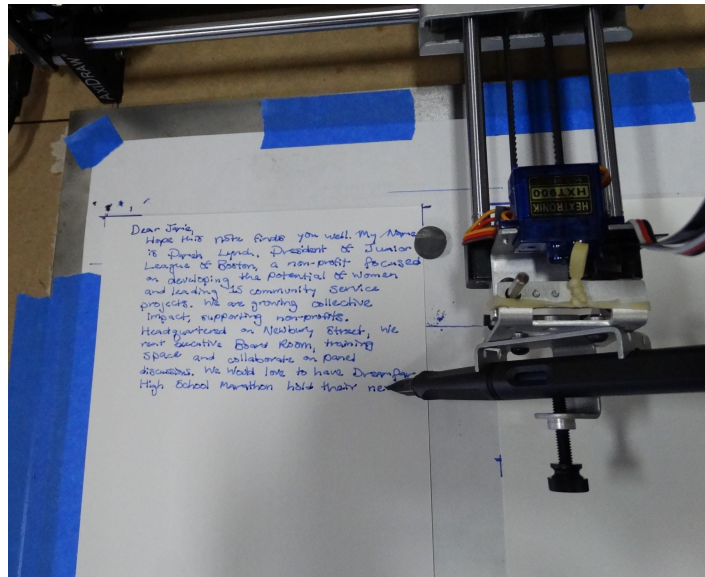 AXIDRAW
HEXTRONIK
HXT900
Dear Janie,
Hope this note finds you well. My Name
is Pareh Lynch, President of Junior
League of Boston, a non-profit focused
on developing the potential of women
and leading is community service
projects. We are growing collective
impact, supporting non-profits.
Headquartered on Newbury Street, We
rent Executive Board Room, training
space and collaborate on panel
discussions. We would love to have
High School Marathon hold their